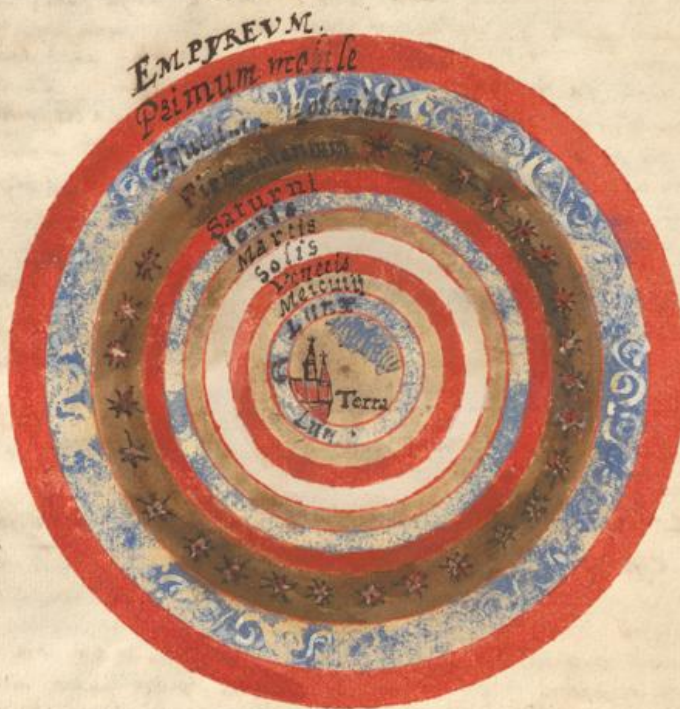 EMPYREVM.
Primum mobile
Firmamentum
Saturni
Iouis
Martis
Solis
Veneris
Mercurij
Lunæ
Terra
Lun